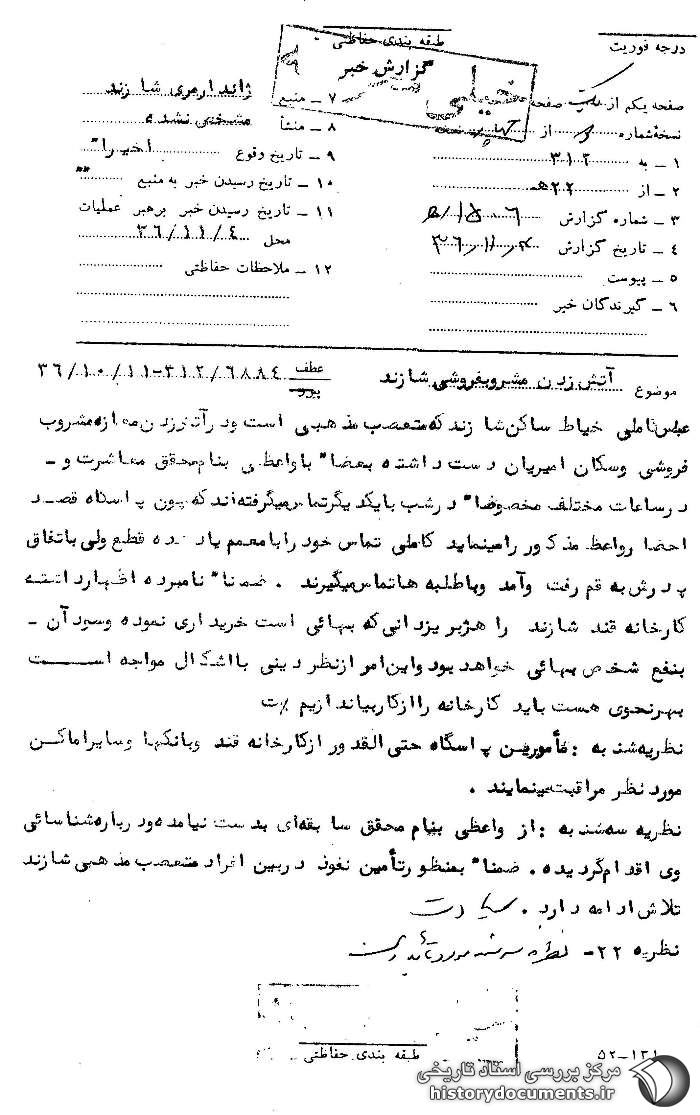 طبقه بندی حفاظتی
درجه فوریت
گزارش خبر
خیلی
صفحه یکم از یک صفحه
نسخه شماره از نسخه
۱ ـ به ۳۱۲
۲ ـ از ۲۲ هـ
۳ ـ شماره گزارش ۱۵۰۶/هـ
۴ ـ تاریخ گزارش ۳۶/۱۱/۴
۵ ـ پیوست
۶ ـ گیرندگان خبر
۷ ـ منبع ژاندارمری شازند
۸ ـ منشأ مشخص نشده
۹ ـ تاریخ وقوع اخیرا"
۱۰ ـ تاریخ رسیدن خبر به منبع ""
۱۱ ـ تاریخ رسیدن خبر برهبر عملیات
محل ۳۶/۱۱/۴
۱۲ ـ ملاحظات حفاظتی
موضوع آتش زدن مشروبفروشی شازند عطف ۳۱۲/۶۸۸۴-۳۶/۱۰/۱۱
پیرو
عباس کاملی خیاط ساکن شازند که متعصب مذهبی است و در آتش زدن مغازه مشروب
فروشی وسکان امیریان دست داشته بعضا" با واعظی بنام محقق معاشرت و ـ
در ساعات مختلف مخصوصا" در شب با یکدیگر تماس میگرفته اند که چون پاسگاه قصد
احضار واعظ مذکور را مینماید کاملی تماس خود را با معمم یاد شده قطع ولی باتفاق
پدرش به قم رفت وآمد وبا طلبه ها تماس میگیرند . ضمنا" نامبرده اظهار داشته
کارخانه قند شازند را هژبر یزدانی که بهائی است خریداری نموده وسود آن ـ
بنفع شخص بهائی خواهد بود واین امر از نظر دینی با اشکال مواجه است
بهر نحوی هست باید کارخانه را از کار بیاندازیم %ت
نظریه شنبه : مأمورین پاسگاه حتی القدور از کارخانه قند وبانکها وسایر اماکن
مورد نظر مراقبت مینمایند .
نظریه سه شنبه : از واعظی بنام محقق سابقه ای بدست نیامده ودرباره شناسائی
وی اقدام گردیده . ضمنا" بمنظور تأمین نفوذ در بین افراد متعصب مذهبی شازند
تلاش ادامه دارد .
نظریه ۲۲- نظریه سه شنبه مورد تأیید است
طبقه بندی حفاظتی
۵۲-۱۳۱
مرکز بررسی اسناد تاریخی
historydocuments.ir